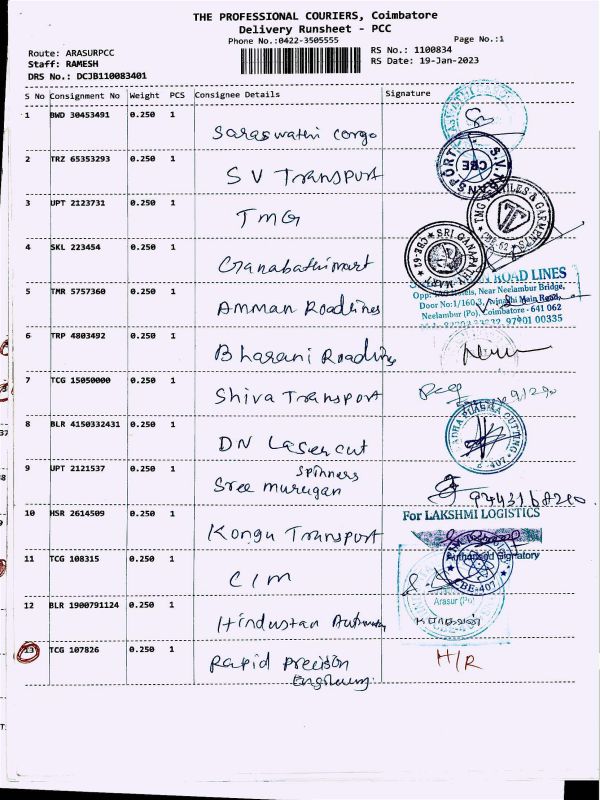 THE PROFESSIONAL COURIERS, Coimbatore
Delivery Runsheet - PCC
Phone No.:0422-3505555
Page No.:1
Route: ARASURPCC
RS No.: 1100834
Staff: RAMESH
RS Date: 19-Jan-2023
DRS No.: DCJB110083401
S No Consignment No Weight PCS Consignee Details Signature
1 BWD 30453491 0.250 1
Saraswathi Corgo
2 TRZ 65353293 0.250 1
S V Transport
S.V. TRANSPORT CBE
3 UPT 2123731 0.250 1
TMG
TMG TEXTILES & GARMENTS CBE-62
4 SKL 223454 0.250 1
Ganabathi mart
SRI GANAPATHY MART CBE-62
5 TMR 5757360 0.250 1
Amman Roadlines
ROAD LINES
Opp: Hotels, Near Neelambur Bridge,
Door No:1/160.3, Avinashi Main Road,
Neelambur (Po), Coimbatore - 641 062
97901 00335
6 TRP 4803492 0.250 1
Bharani Roadlines
7 TCG 15050000 0.250 1
Shiva Transport
8 BLR 4150332431 0.250 1
DN Lasercut
PLASMA CUTTING
-407
9 UPT 2121537 0.250 1
Spinners
Sree murugan
10 HSR 2614509 0.250 1
For LAKSHMI LOGISTICS
Kongu Transport
Authorised Signatory
11 TCG 108315 0.250 1
CIM
CBE-407
12 BLR 1900791124 0.250 1
Arasur (Po)
Hindustan
13 TCG 107826 0.250 1
Rapid Precision
H/R